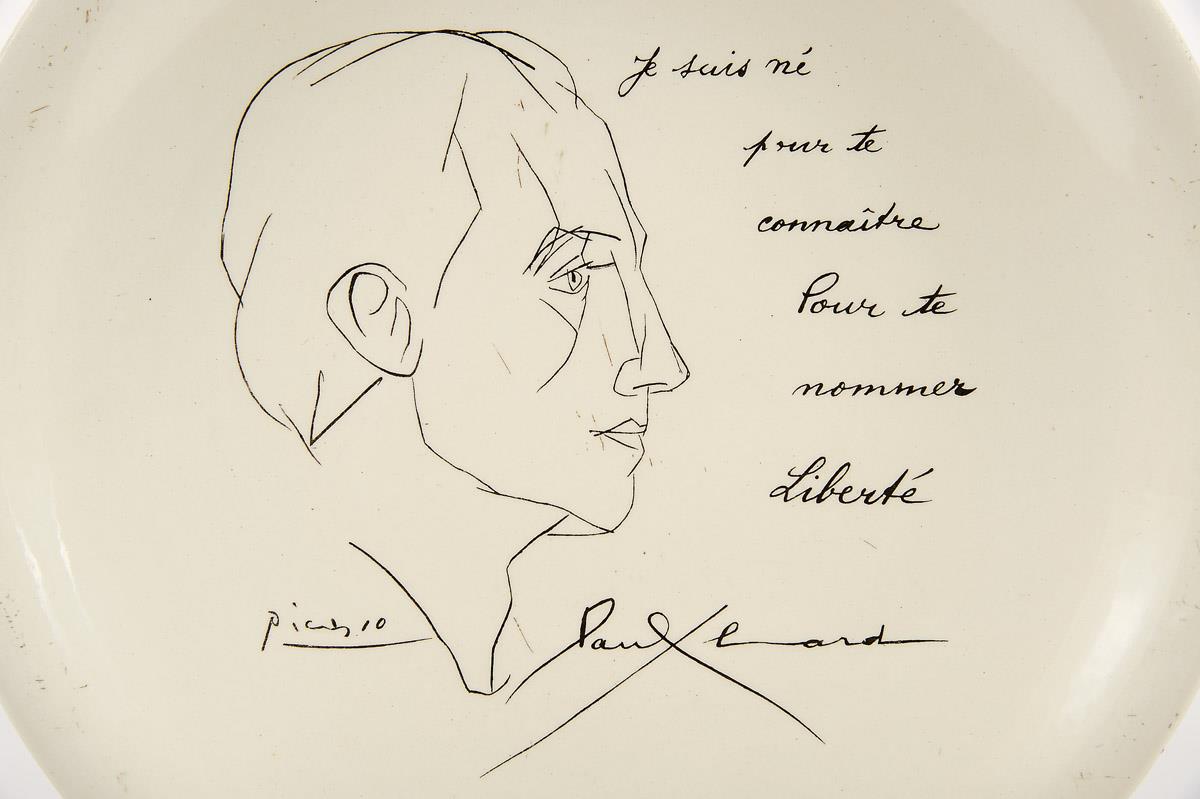 Je suis né
pour te
connaître
Pour te
nommer
Liberté
Picasso
Paul Eluard